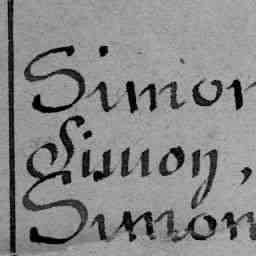 Simon
Simon,
Simon